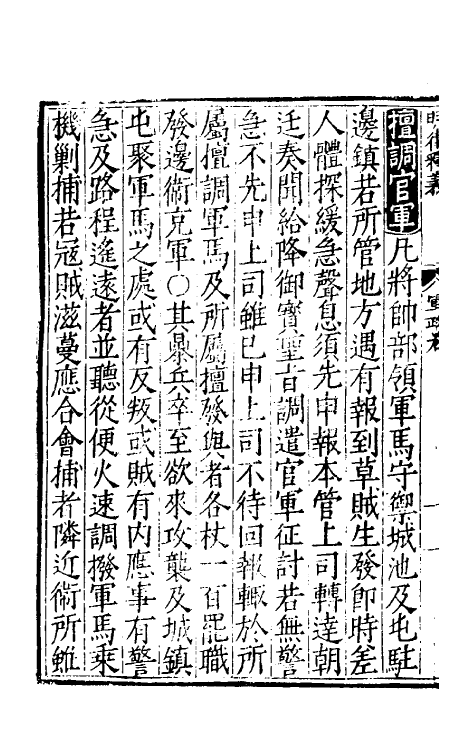 擅調官軍凡將帥部領軍馬守禦城池及屯駐
邊鎮若所管地方遇有報到草賊生發即時差
人體探緩急聲息須先申報本管上司轉達朝
廷奏聞給降御寳聖旨調遣官軍征討若無警
急不先申上司雖已申上司不待回報輙於所
屬擅調軍馬及所屬擅發與者各杖一百罷職
發邊衛充軍○其暴兵卒至欲來攻襲及城鎮
屯聚軍馬之處或有反叛或賊有内應事有警
急及路程遙遠者並聽從便火速調撥軍馬乗
機剿捕若冦賊滋蔓應合會捕者隣近衛所雖